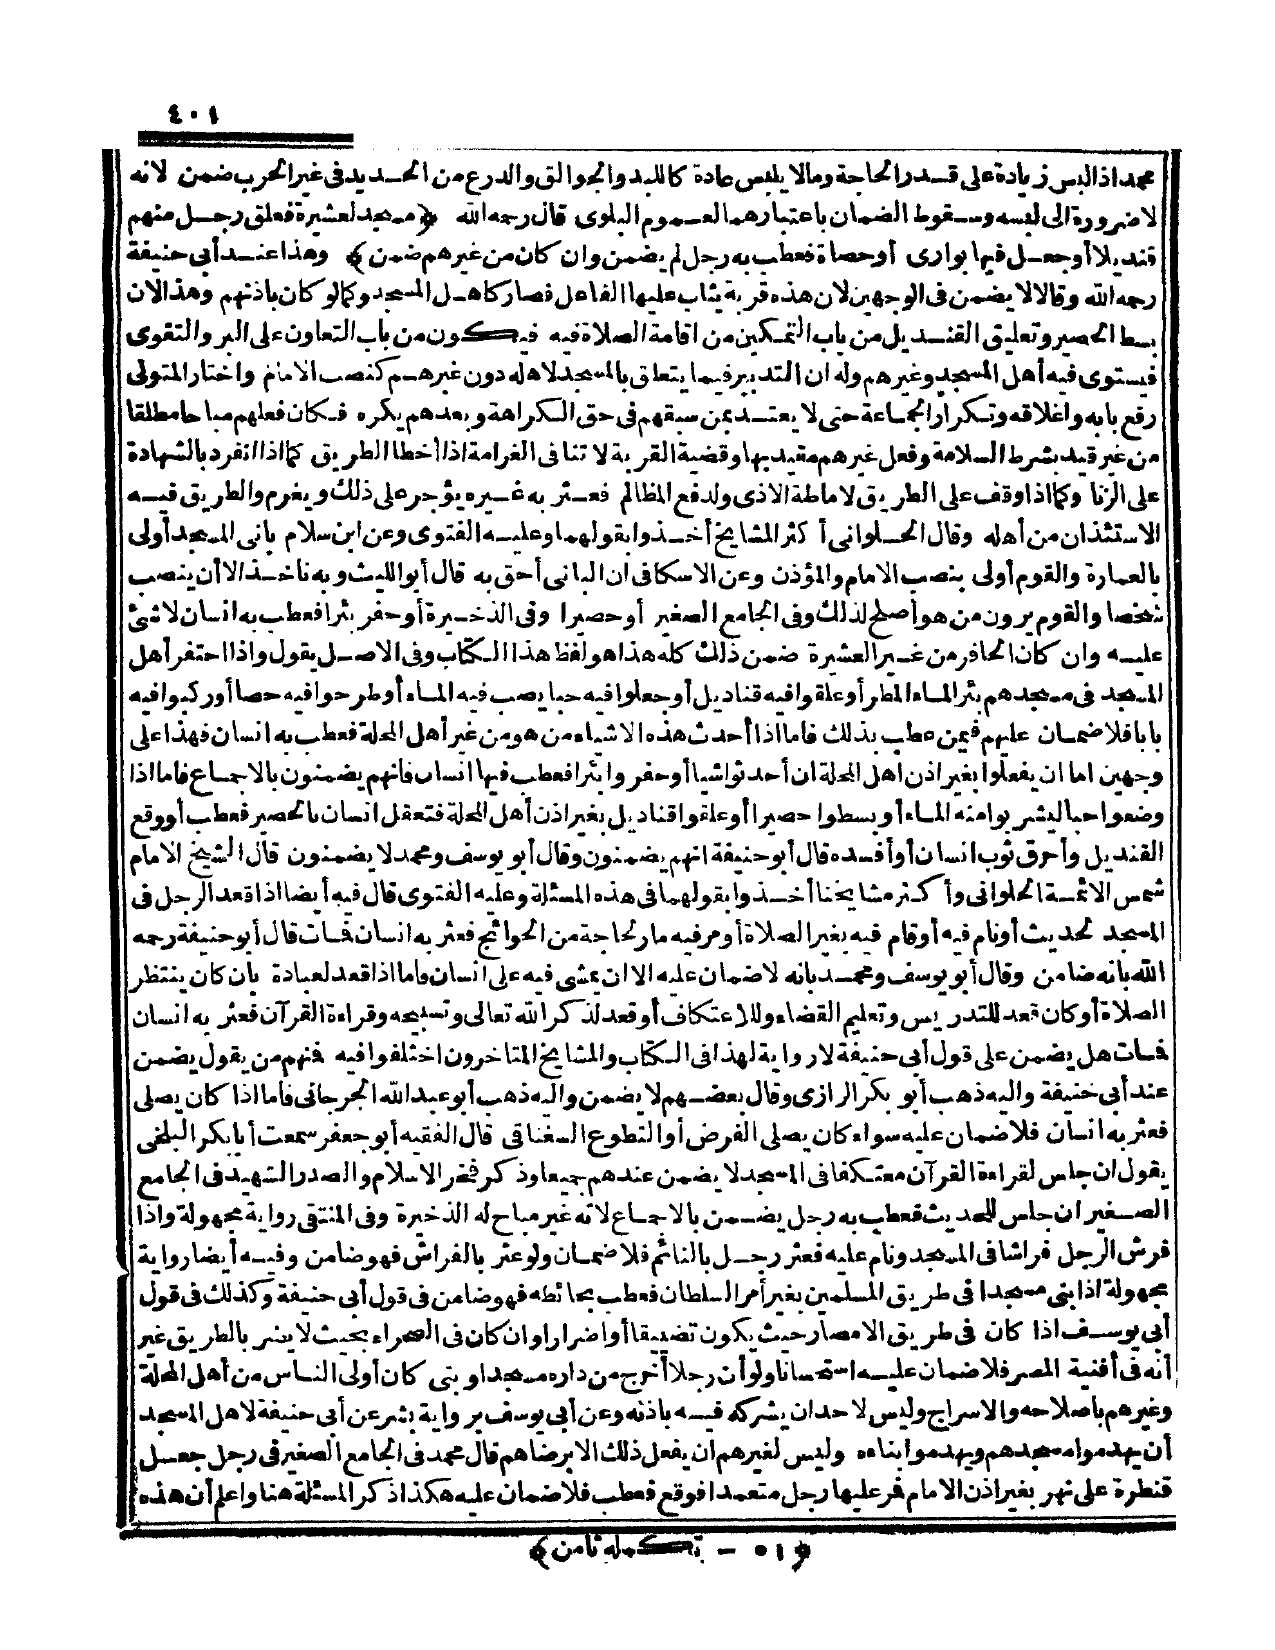 ٤٠١
محمد اذا لبس زيادة على قدر الحاجة وما لا يلبس عادة كاللبد والجوالق والدرع من الحديد في غير الحرب ضمن لانه
لا ضرورة الى لبسه وسقوط الضمان باعتبارهما لعموم البلوى قال رحمه الله ﴿مسجد لعشيرة فعلق رجل منهم
قنديلا أو جعل فيها بوارى أو حصاة فعطب به رجل لم يضمن وان كان من غيرهم ضمن﴾ وهذا عند أبي حنيفة
رحمه الله وقالا لا يضمن في الوجهين لان هذه قربة يثاب عليها الفاعل فصار كاهل المسجد وكما لو كان باذنهم وهذا لان
بسط الحصير وتعليق القنديل من باب التمكين من اقامة الصلاة فيه فيكون من باب التعاون على البر والتقوى
فيستوى فيه أهل المسجد وغيرهم وله ان التدبير فيما يتعلق بالمسجد لاهله دون غيرهم كنصب الامام واختار المتولى
رفع بابه واغلاقه وتكرار الجماعة حتى لا يعتد بمن سبقهم في حق الكراهة وبعدهم يكره فكان فعلهم مباحا مطلقا
من غير قيد بشرط السلامة وفعل غيرهم مقيد بها وقضية القربة لا تنافى الغرامة اذا أخطا الطريق كما اذا انفرد بالشهادة
على الزنا وكما اذا وقف على الطريق لاماطة الاذى ولدفع المظالم فعثر به غيره يؤجر على ذلك ويغرم والطريق فيه
الاستئذان من أهله وقال الحلوانى أكثر المشايخ أخذوا بقولهما وعليه الفتوى وعن ابن سلام بانى المسجد أولى
بالعمارة والقوم أولى بنصب الامام والمؤذن وعن الاسكاف ان البانى أحق به قال أبو الليث وبه ناخذ الا أن ينصب
شخصا والقوم يرون من هو أصلح لذلك وفي الجامع الصغير أو حصيرا وفى الذخيرة أو حفر بئرا فعطب به انسان لا شئ
عليه وان كان الحافر من غير العشيرة ضمن ذلك كله هذا هو لفظ هذا الكتاب وفى الاصل يقول واذا احتفر أهل
المسجد في مسجدهم بئر الماء المطر أو علقوا فيه قناديل أو جعلوا فيه حبا يصب فيه الماء أو طرحوا فيه حصا أو ركبوا فيه
بابا فلا ضمان عليهم فيمن عطب بذلك فاما اذا أحدث هذه الاشياء من هو من غير أهل المحلة فعطب به انسان فهذا على
وجهين اما ان يفعلوا بغير اذن اهل المحلة ان أحدثوا شيا أو حفروا بئرا فعطب فيها انسان فانهم يضمنون بالاجماع فاما اذا
وضعوا حبا ليشربوا منه الماء أو بسطوا حصيرا أو علقوا قناديل بغير اذن أهل المحلة فتعقل انسان بالحصير فعطب أو وقع
القنديل وأحرق ثوب انسان أو أفسده قال أبو حنيفة انهم يضمنون وقال أبو يوسف ومحمد لا يضمنون قال الشيخ الامام
شمس الائمة الحلوانى وأكثر مشايخنا أخذوا بقولهما في هذه المسئلة وعليه الفتوى قال فيه أيضا اذا قعد الرجل في
المسجد لحديث أو نام فيه أو قام فيه بغير الصلاة أو مر فيه مار لحاجة من الحوائج فعثر به انسان فمات قال أبو حنيفة رحمه
الله بانه ضامن وقال أبو يوسف ومحمد بانه لا ضمان عليه الا ان يمشى فيه على انسان فاما اذا قعد لعبادة بان كان ينتظر
الصلاة أو كان قعد للتدريس وتعليم القضاء وللاعتكاف أو قعد لذكر الله تعالى وتسبيحه وقراءة القرآن فعثر به انسان
فمات هل يضمن على قول أبي حنيفة لا رواية لهذا في الكتاب والمشايخ المتاخرون اختلفوا فيه فمنهم من يقول يضمن
عند أبي حنيفة واليه ذهب أبو بكر الرازى وقال بعضهم لا يضمن واليه ذهب أبو عبد الله الجرجاني فاما اذا كان يصلى
فعثر به انسان فلا ضمان عليه سواء كان يصلى الفرض أو التطوع السغناقي قال الفقيه أبو جعفر سمعت أبا بكر البلخى
يقول ان جلس لقراءة القرآن معتكفا في المسجد لا يضمن عندهم جميعا وذكر فخر الاسلام والصدر الشهيد في الجامع
الصغير ان جلس للحديث فعطب به رجل يضمن بالاجماع لانه غير مباح له الذخيرة وفى المنتقى رواية مجهولة واذا
فرش الرجل فراشا في المسجد ونام عليه فعثر رجل بالنائم فلا ضمان ولو عثر بالفراش فهو ضامن وفيه أيضا رواية
مجهولة اذا بنى مسجدا في طريق المسلمين بغير أمر السلطان فعطب بحائطه فهو ضامن في قول أبي حنيفة وكذلك في قول
أبي يوسف اذا كان في طريق الامصار حيث يكون تضييقا أو اضرارا وان كان في الصحراء بحيث لا يضر بالطريق غير
أنه في أفنية المصر فلا ضمان عليه استحسانا ولو أن رجلا أخرج من داره مسجدا وبنى كان أولى الناس من أهل المحلة
وغيرهم باصلاحه والاسراج وليس لاحد ان يشركه فيه باذنه وعن أبي يوسف برواية بشر عن أبي حنيفة لاهل المسجد
أن يهدموا مسجدهم ويهدموا بناءه وليس لغيرهم ان يفعل ذلك الا برضاهم قال محمد في الجامع الصغير في رجل جعل
قنطرة على نهر بغير اذن الامام فمر عليها رجل متعمدا فوقع فعطب فلا ضمان عليه هكذا ذكر المسئلة هنا واعلم أن هذه
﴿٥١ - تكمله ثامن﴾